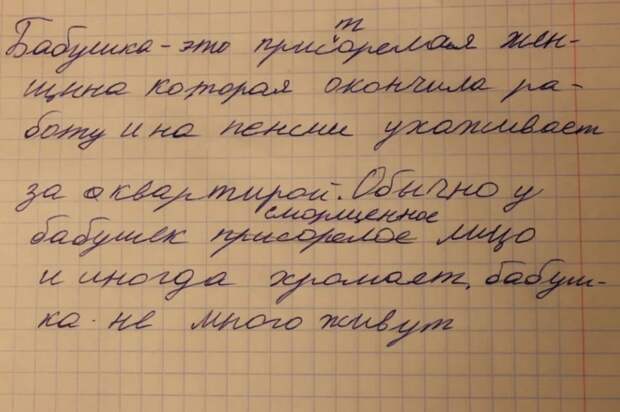 т
Бабушка - это присорелая жен-
щина которая окончила ра-
боту и на пенсии ухаживает
за аквартирой. Обычно у
сморщенное
бабушек присорелое лицо
и иногда хромает, бабуш-
ка не много живут